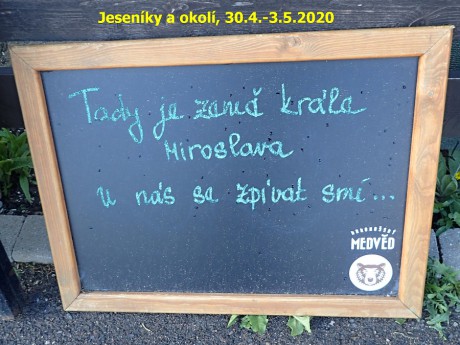 Jeseníky a okolí, 30.4.-3.5.2020
Tady je země krále
Miroslava
U nás se zpívat smí...
MEDVĚD